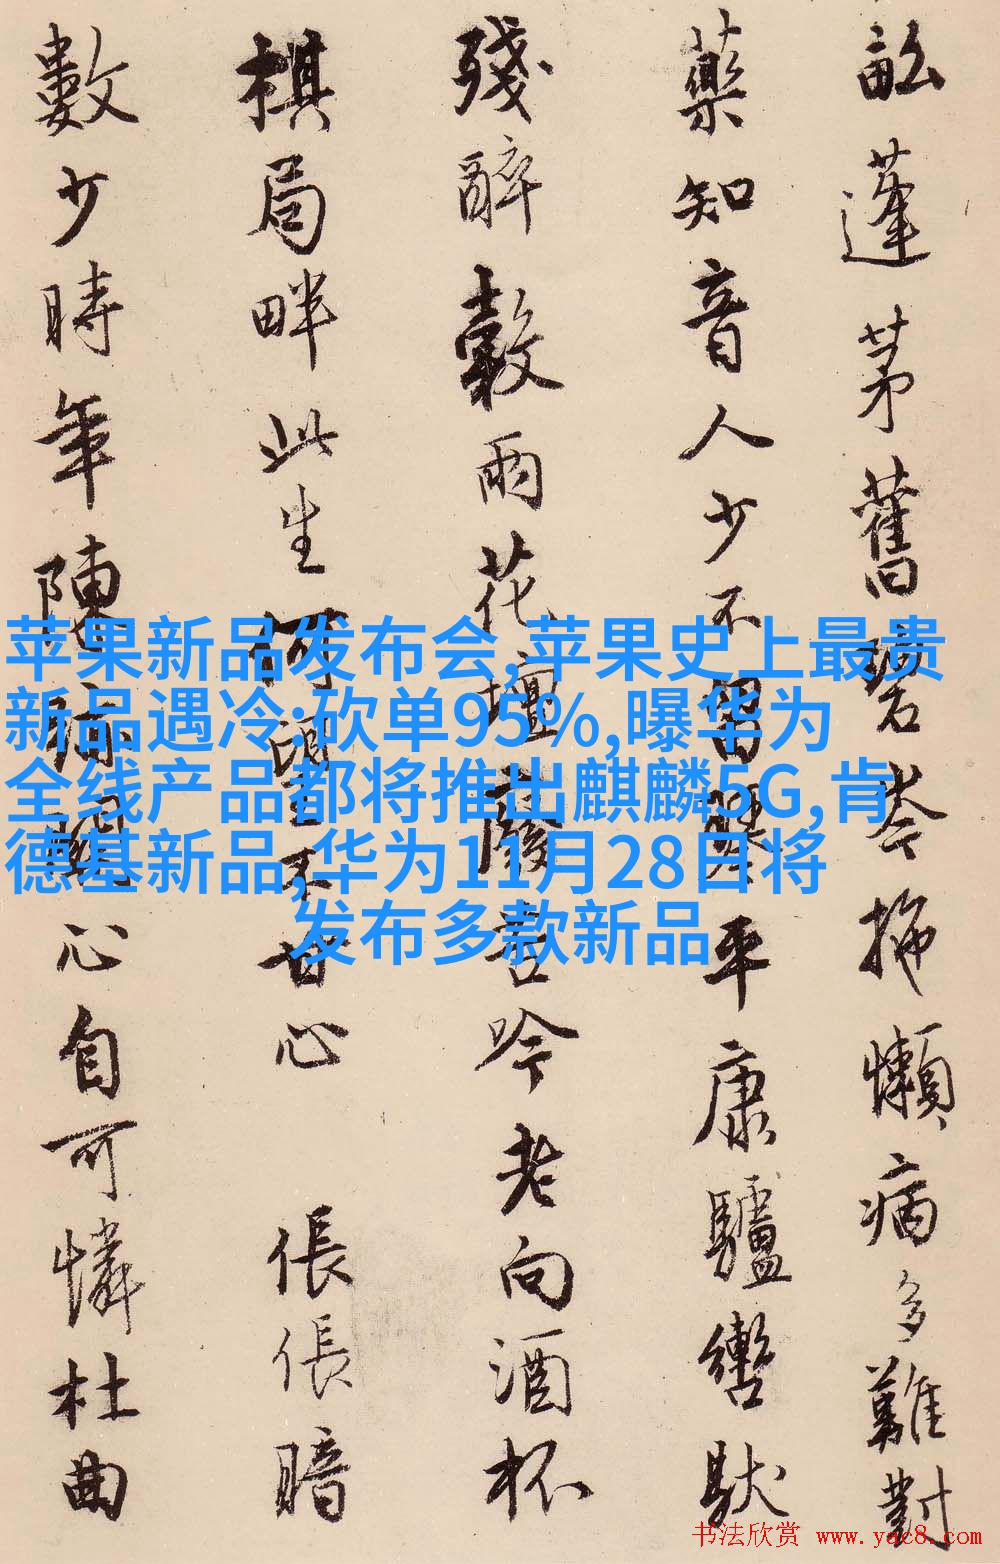 蓬茅舊碧岑拖懶病多難對
藥知音人少不留琴平康驢轡馱
殘醉穀雨花壇廢苦吟老向酒杯
棋局畔此生何望不甘心 倀倀暗
數少時年陳關心自可憐杜曲
苹果新品发布会,苹果史上最贵
新品遇冷:砍单95%,曝华为
全线产品都将推出麒麟5G,肯
德基新品,华为11月28日将
发布多款新品
书法欣赏 www.yac8.com